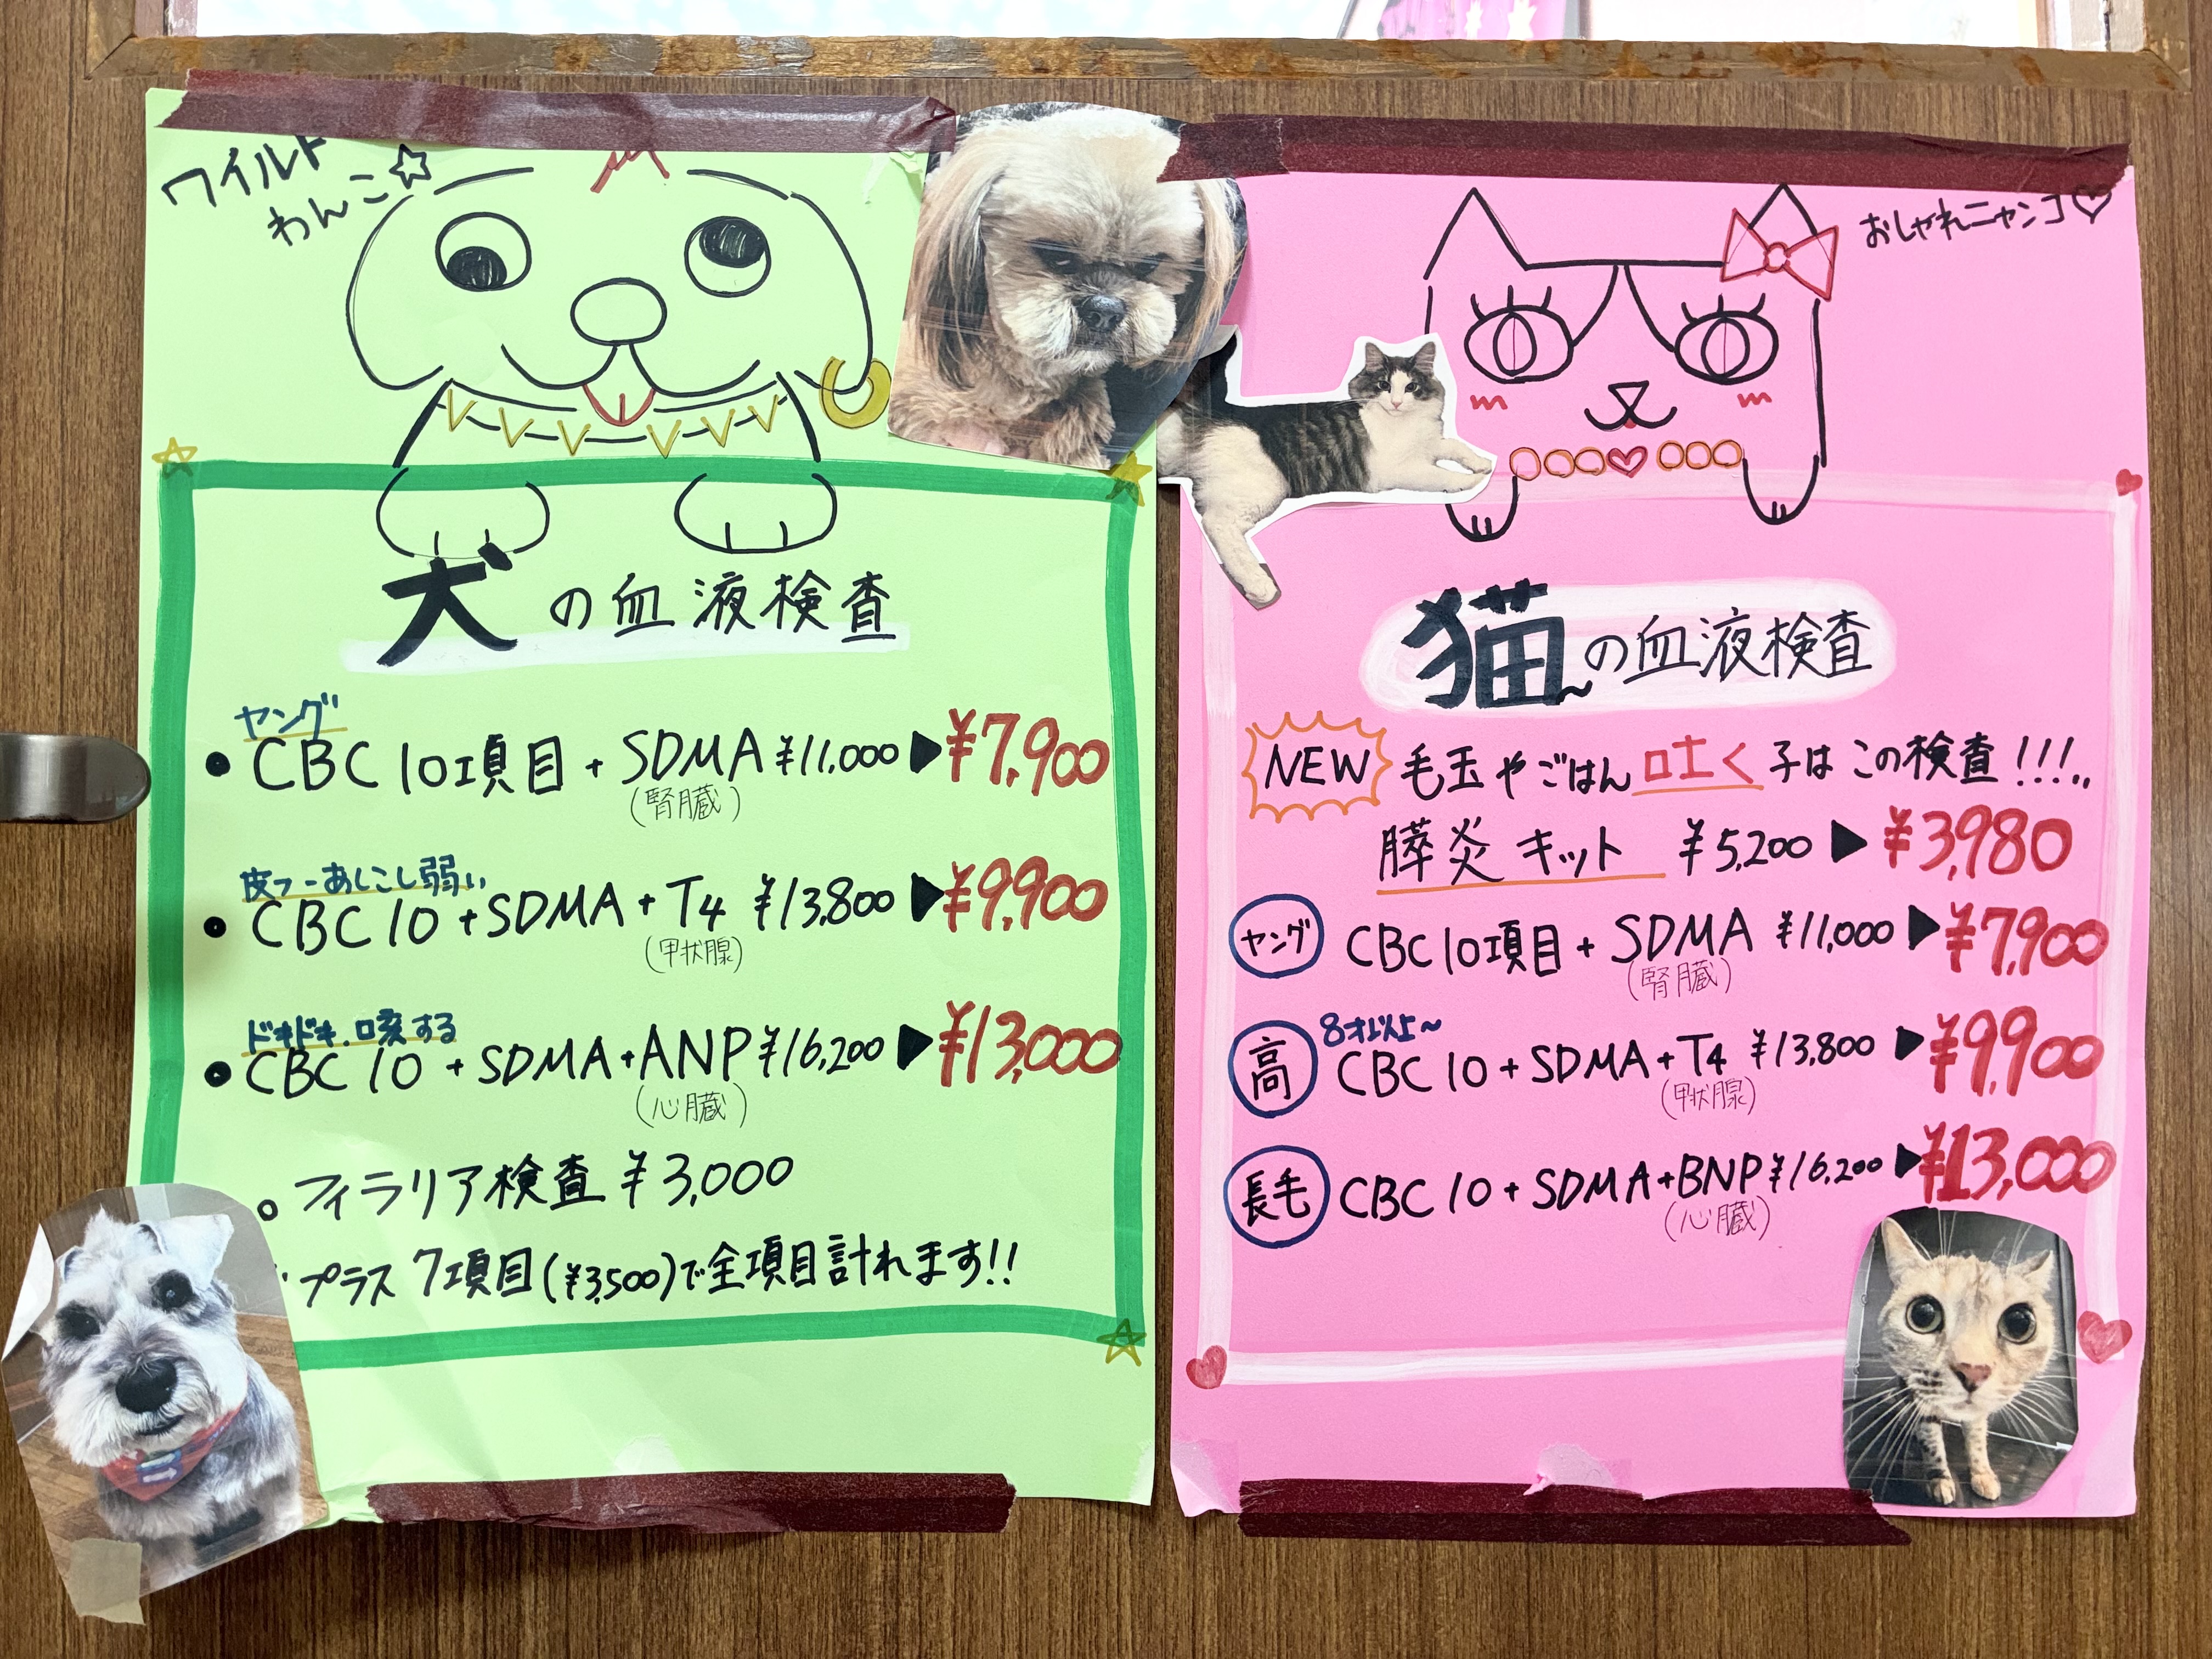 ワイルド
わんこ☆
犬の血液検査
ヤング
• CBC 10項目 + SDMA ¥11,000 ▶ ¥7,900
(腎臓)
皮フ-あしこし弱い
• CBC 10 + SDMA + T4 ¥13,800 ▶ ¥9,900
(甲状腺)
ドキドキ.咳する
• CBC 10 + SDMA + ANP ¥16,200 ▶ ¥13,000
(心臓)
○ フィラリア検査 ¥3,000
プラス 7項目(¥3,500)で全項目計れます!!
おしゃれニャンコ♡
猫の血液検査
NEW 毛玉やごはん吐く子はこの検査!!!..
膵炎キット ¥5,200 ▶ ¥3,980
ヤング CBC 10項目 + SDMA ¥11,000 ▶ ¥7,900
(腎臓)
8才以上~
高 CBC 10 + SDMA + T4 ¥13,800 ▶ ¥9,900
(甲状腺)
長毛 CBC 10 + SDMA + BNP ¥16,200 ▶ ¥13,000
(心臓)